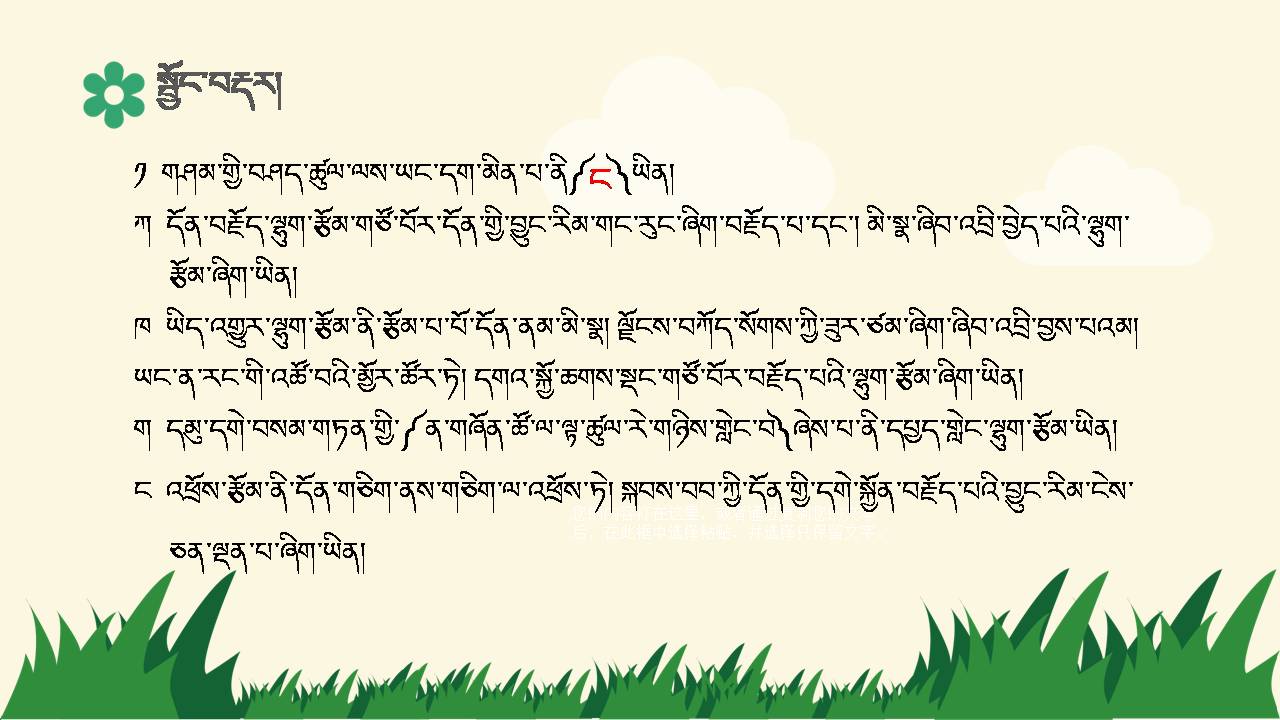 སྦྱོང་བརྡར།
༡ གཤམ་གྱི་བཤད་ཚུལ་ལས་ཡང་དག་མིན་པ་ནི༼ང༽ཡིན།
ཀ དོན་བརྗོད་ལྷུག་རྩོམ་གཙོ་བོར་དོན་གྱི་བྱུང་རིམ་གང་རུང་ཞིག་བརྗོད་པ་དང་། མི་སྣ་ཞིབ་འབྲི་བྱེད་པའི་ལྷུག་
རྩོམ་ཞིག་ཡིན།
ཁ ཡིད་འགྱུར་ལྷུག་རྩོམ་ནི་རྩོམ་པ་པོ་དོན་ནམ་མི་སྣ། ལྗོངས་བཀོད་སོགས་ཀྱི་ཟུར་ཙམ་ཞིག་ཞིབ་འབྲི་བྱས་པའམ།
ཡང་ན་རང་གི་འཚོ་བའི་མྱོར་ཚོར་ཏེ། དགའ་སྐྱོ་ཆགས་སྡང་གཙོ་བོར་བརྗོད་པའི་ལྷུག་རྩོམ་ཞིག་ཡིན།
ག དམུ་དགེ་བསམ་གཏན་གྱི་༼ན་གཞོན་ཚོ་ལ་ལྟ་ཚུལ་རེ་གཉིས་གླེང་བ༽ཞེས་པ་ནི་དཔྱད་གླེང་ལྷུག་རྩོམ་ཡིན།
ང འཕྲོས་རྩོམ་ནི་དོན་གཅིག་ནས་གཅིག་ལ་འཕྲོས་ཏེ། སྐབས་བབ་ཀྱི་དོན་གྱི་དགེ་སྐྱོན་བརྗོད་པའི་བྱུང་རིམ་ངེས་
ཅན་ལྡན་པ་ཞིག་ཡིན།
后，在此框中选择粘贴，并选择只保留文字。